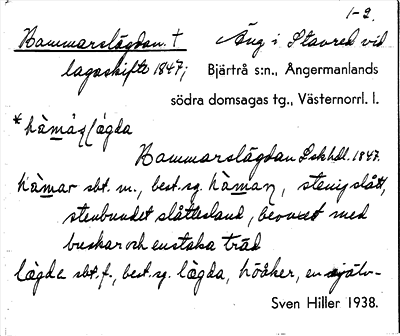 1-2.
Hammarslägdan. † Äng i Stavred vid
lagaskifte 1847; Bjärtrå s:n., Ångermanlands
södra domsagas tg., Västernorrl. l.
*hàmaɳlǽgda
Hammarslägdan Lskhdl. 1847.
hàmar sbt. m., best. sg. hàmaɳ, stenig slått,
stenbundet slåttesland, bevuxet med
buskar och enstaka träd
lǽgda sbt. f., best. sg. lǽgda, höåker, en själv-
Sven Hiller 1938.